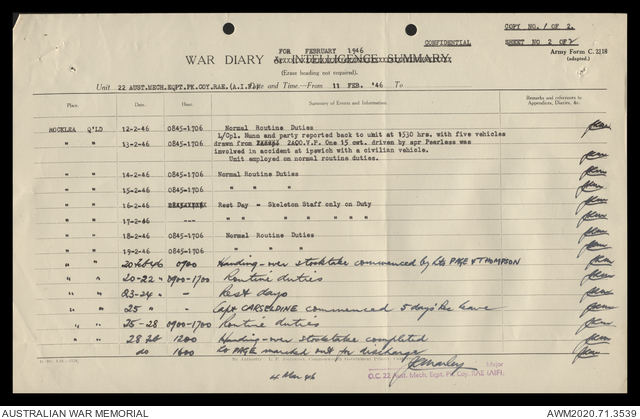 COPY NO. 1 OF 2.
CONFIDENTIAL
SHEET NO 2 OF 2
FOR FEBRUARY 1946
Army Form C. 2118
(adapted.)
WAR DIARY or INTELLIGENCE SUMMARY.
(Erase heading not required).
Unit 22 AUST.MECH.EQPT.PK.COY.RAE.(A.I.F) Date and Time.—From 11 FEB. '46 To
Place. Date. Hour. Summary of Events and Information. Remarks and references to
Appendices, Diaries, &c.
ROCKLEA Q'LD 12-2-46 0845-1706 Normal Routine Duties
" " 13-2-46 0845-1706 L/Cpl. Nunn and party reported back to unit at 1530 hrs. with five vehicles
drawn from 2AOO.V.P. One 15 cwt. driven by spr Pearless was
involved in accident at ipswich with a civilian vehicle.
Unit employed on normal routine duties.
" " 14-2-46 0845-1706 Normal Routine Duties
" " 15-2-46 0845-1706 " " "
" " 16-2-46 Rest Day - Skeleton Staff only on Duty
" " 17-2-46 --- " " " " " "
" " 18-2-46 0845-1706 Normal Routine Duties
" " 19-2-46 0845-1706 " " "
" " 20 Feb 46 0900 Handing-over stocktake commenced by Lts PAGE & THOMPSON
" " 20-22 " 0900-1700 Routine duties
" " 23-24 " - Rest days
" " 25 " - Capt CARSELDINE commenced 5 days Rec leave
" " 25-28 0900-1700 Routine duties
28 Feb 1200 Handing-over stocktake completed
do 1600 Lt PAGE marched out for discharge
Major
O.C. 22 Aust. Mech. Eqpt. Pk. Coy. RAE (AIF)
4 Mar 46
AUSTRALIAN WAR MEMORIAL
AWM2020.71.3539